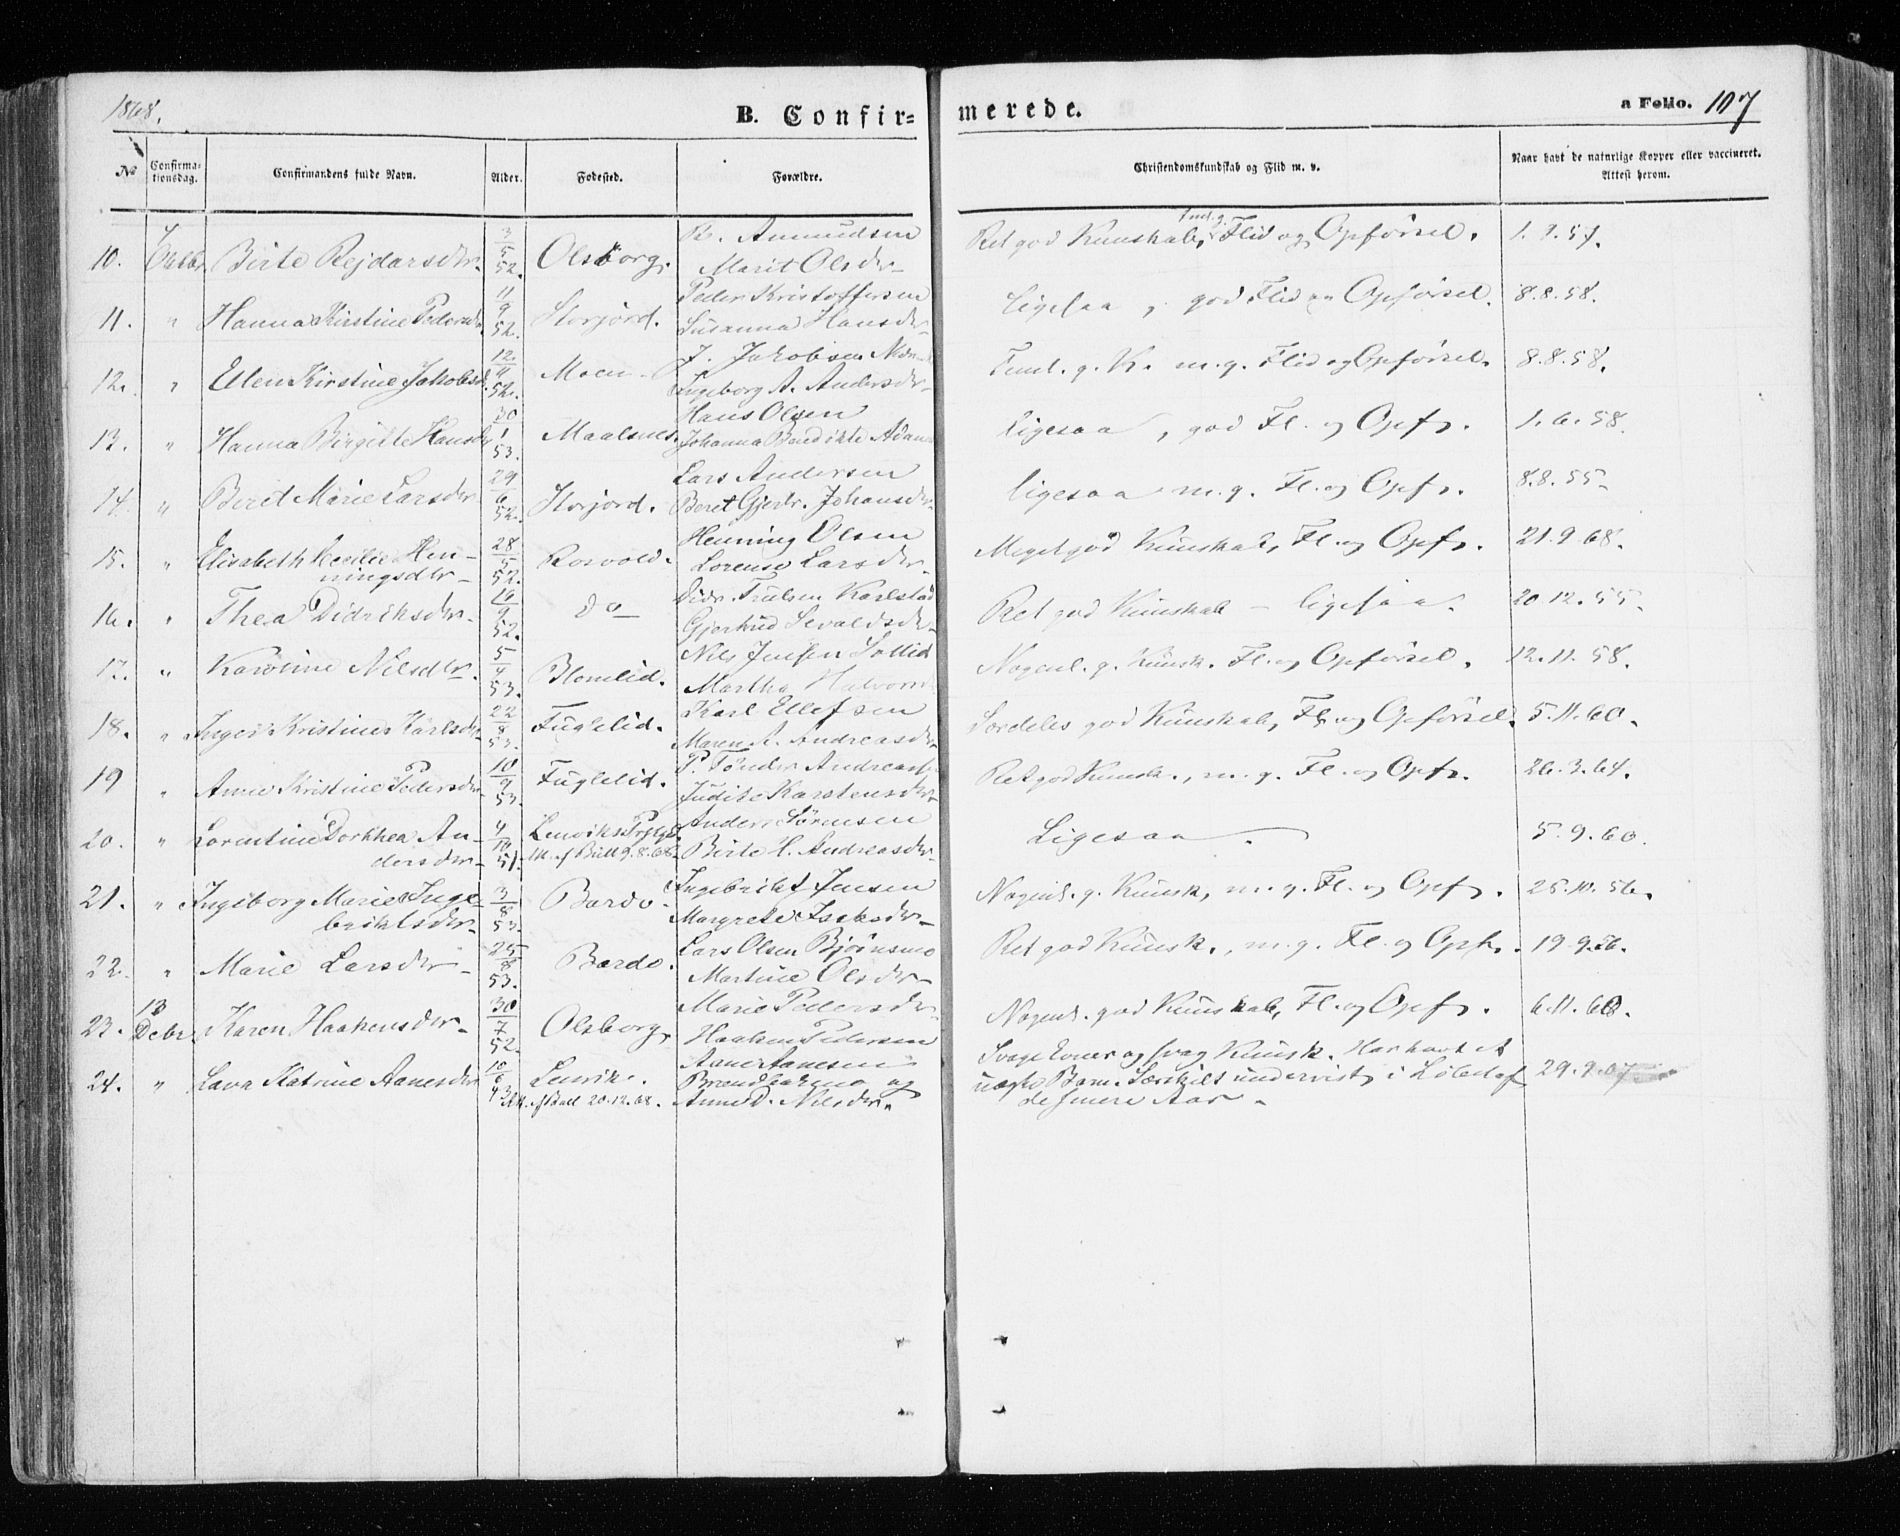 1868.
B. Confirmerede.
a Folio. 107
No
Confirmationsdag.
Confirmandens fulde Navn.
Alder.
Fødested.
Forældre.
Christendomskundskab og Flid m. v.
Naar havt de naturlige Kopper eller vaccineret. Attest herom.
10. Birte Rejdarsdtr. 3/5 52. Olsborg. R. Amundsen Marit Olsdtr Ret god Kunskab, Flid og Opførsel. 1.9.57.
11. " Hanna Kirstine Pedersdtr 11/9 52. Storjord. Peder Kristoffersen Susanna Hansdtr Ligesaa, god Flid og Opførsel. 8.8.58.
12. " Ellen Kirstine Jakobsd. 12/9 52. Moen J. Jakobsen Ingeborg A. Andersdtr Teml. g. K. m.g. Flid og Opførsel. 8.8.58.
13. " Hanna Birgitte Hansdtr 30/1 53. Maalsnes. Hans Olsen Johanna Bendikte Ligesaa, god Fl. og Opf. 1.6.58.
14. " Beret Marie Larsdtr 29/6 52. Storjord. Lars Andersen Beret Gjertr. Johansdtr ligesaa m.g. Fl. og Opf. 8.8.55
15. " Elisabeth Cecilie Henningsdtr 28/5 52. Rosvold. Henning Olsen Lorense Larsdtr Meget god Kunskab, Fl. og Opf. 21.9.68.
16. " Thea Didriksdtr. 52. do Didr. Trulsen Karlstad Gjertrud Sevaldsdtr Ret god Kunskab ligesaa. 20.12.55
17. " Karoline Nilsdtr. 5/4 53. Blomlid. Nils Jensen Sollid Martha Nogenl. g. Kunsk. Fl. og Opførsel. 12.11.58.
18. " Kristine Karlsdtr 22/8 53. Fuglelid. Karl Ellefsen Maren A. Andreasdtr Særdeles god Kunskab, Fl. og Opførsel. 5.11.60.
19 " Anne Kristine Pedersdtr 10/9 53. Fuglelid. P. Tønder Andreas Judite Karstensdtr Ret god Kunsk., m.g. Fl. og Opf. 26.3.64.
20. " Lorentine Dorthea Andersdtr 4/10 51. Lenviks Prstgd. Att. af Bull 9.8.68. Anders Sørensen Birte H. Andreasdtr Ligesaa. 5.9.60.
21. " Ingeborg Marie Ingebriktsdtr 3/8 53. Bardo. Ingebrikt Jensen Margrete Isaksdtr Nogenl. g. Kunsk, m.g. Fl. og Opf. 25.10.56.
22. " Marie Larsdtr 25/8 53. Bardo. Lars Olsen Bjørnsmo Martine Olsdtr Ret god Kunsk., m.g. Fl. og Opf. 19.9.56.
23. 13 Debr. Karen Haakensdtr 30/7 52. Olsborg. Marie Pedersdtr Haaken Pedersen Nogenl. god Kunskab, Fl. og Opf. 6.11.60.
24. " Lava Katrine Aanesdtr Lenvik. Att. af Bull 20.12.68. Aane Aanesen og Anne D. Nilsdtr. Svage Evner og svag Kunsk. Har havt et uægte Barn. Særskilt undervist i Løbet af de senere Aar. 29.9.67